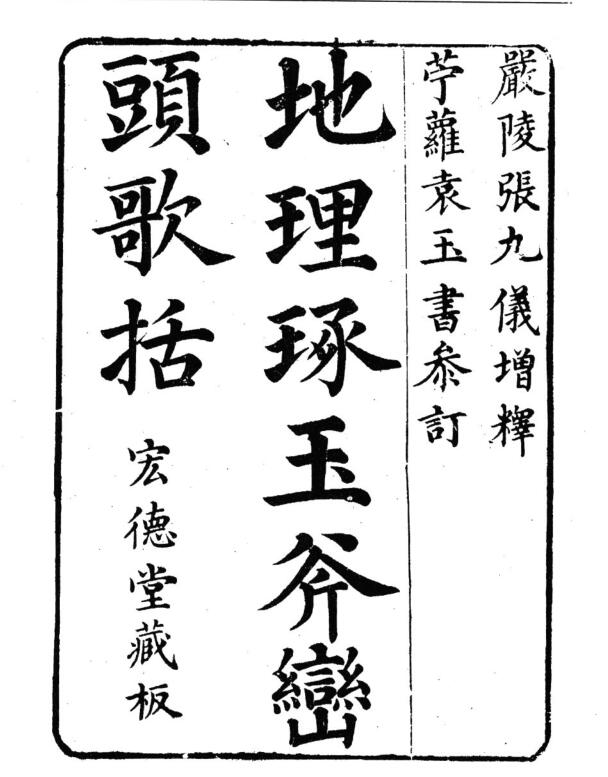 嚴陵張九儀增釋
苧蘿袁玉書叅訂
地理琢玉斧巒
頭歌括
宏德堂藏板